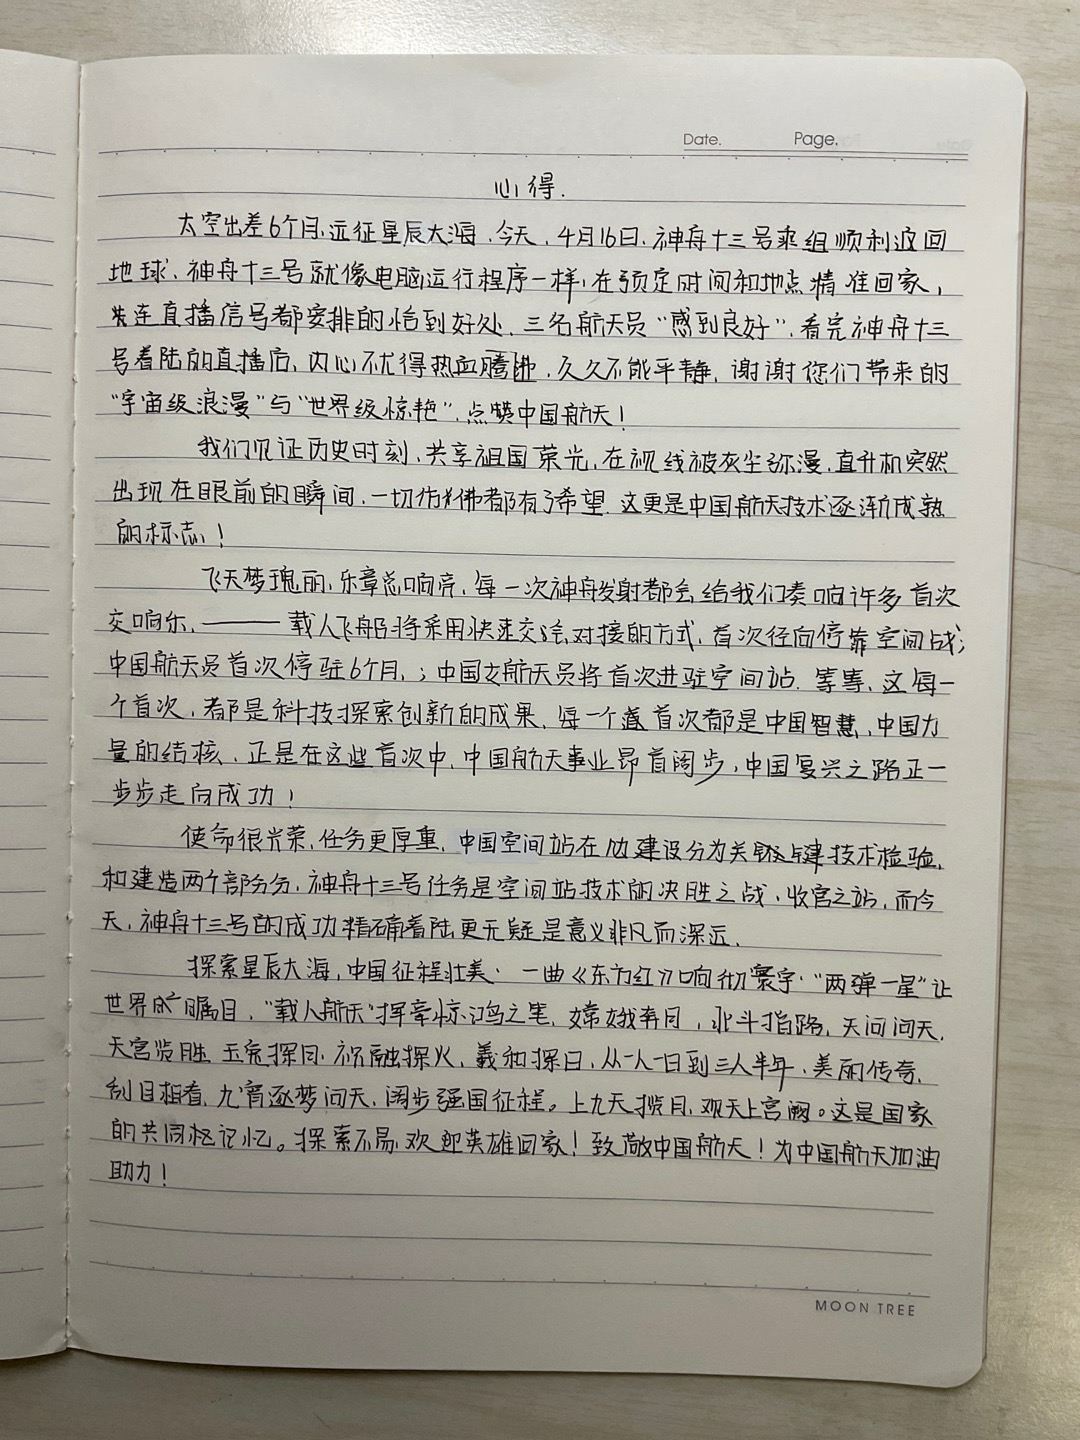 Date. Page.
心得.
太空出差6个月,远征星辰大海.今天,4月16日,神舟十三号乘组顺利返回
地球,神舟十三号就像电脑运行程序一样,在预定时间和地点精准回家,
连直播信号都安排的恰到好处.三名航天员“感到良好”,看完神舟十三
号着陆的直播后,内心不尤得热血腾沸,久久不能平静,谢谢您们带来的
“宇宙级浪漫”与“世界级惊艳”,点赞中国航天!
我们见证历史时刻,共享祖国荣光,在视线被灰尘弥漫,直升机突然
出现在眼前的瞬间,一切仿佛都有了希望.这更是中国航天技术逐渐成熟
的标志!
飞天梦瑰丽,乐章总响亮,每一次神舟发射都会给我们奏响许多首次
交响乐,——载人飞船将采用快速交会对接的方式,首次径向停靠空间战;
中国航天员首次停驻6个月,;中国女航天员将首次进驻空间站.等等,这每一
个首次,都是科技探索创新的成果,每一个首次都是中国智慧,中国力
量的结核,正是在这些首次中,中国航天事业昂首阔步,中国复兴之路正一
步步走向成功!
使命很光荣,任务更厚重,中国空间站在建设分为关键技术检验,
和建造两个部分分,神舟十三号任务是空间站技术的决胜之战,收官之站,而今
天,神舟十三号的成功精确着陆更无疑是意义非凡而深远.
探索星辰大海,中国征程壮美.一曲《东方红》响彻寰宇.“两弹一星”让
世界瞩目,“载人航天”挥毫惊鸿之笔,嫦娥奔月,北斗指路,天问问天,
天宫览胜,玉兔探月.祝融探火,羲和探日,从一人一日到三人半年,美丽传奇,
刮目相看,九霄逐梦问天,阔步强国征程。上九天揽月,观天上宫阙。这是国家
的共同记忆。探索不易,欢迎英雄回家!致敬中国航天!为中国航天加油
助力!
MOON TREE